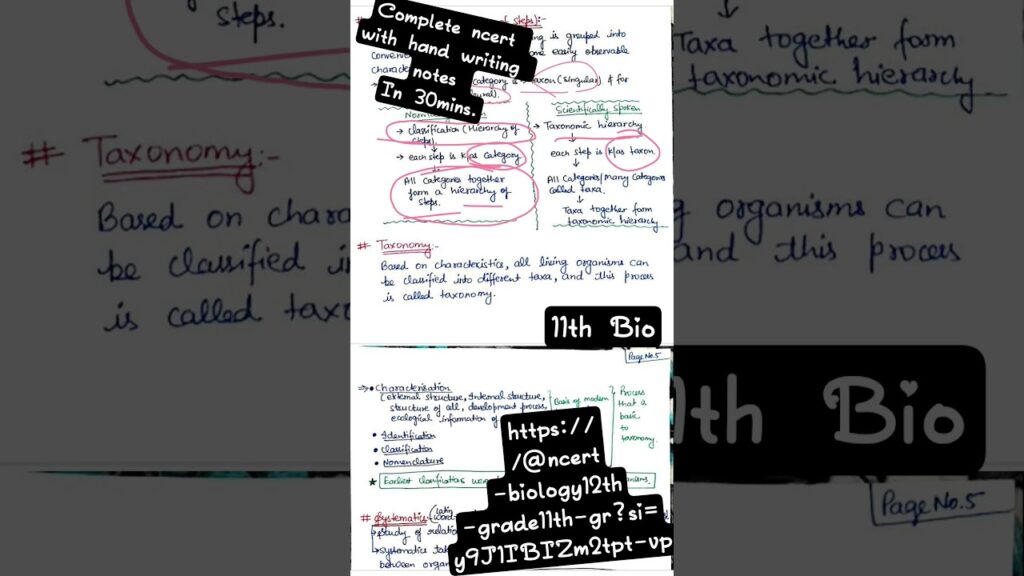 steps.
# Taxonomy:-
Based on chara
be classified in
is called taxo
Complete ncert
with hand writing
notes
In 30mins.
f steps):-
ing is grouped into
conven
me easily observable
characte
category is
taxon (singular) & for
ural).
→ Classification (Hierarchy of
steps)
↓
→ each step is k/as category
↓
All categories together
form a hierarchy of
steps.
Scientifically spoken
→ Taxonomic hierarchy
↓
each step is k/as taxon
↓
All Categories/Many Categories
called taxa.
↓
Taxa together form
taxonomic hierarchy
# Taxonomy:-
Based on characteristics, all living organisms can
be classified into different taxa, and this process
is called taxonomy.
11th Bio
Page No.5
⇒ • Characterisation
(external structure, Internal structure,
structure of cell, development process,
ecological information of
Basis of modern
Process
that is
basic
to
taxonomy.
• Identification
• Classification
• Nomenclature
★ Earliest classifications were
https://
/@ncert
-biology12th
-grade11th-gr?si=
y9J1IBIZm2tpt-vp
# Systematics
study of relatio
systematics tak
between organ
↓
Taxa together form
taxonomic hierarchy
g organisms can
and this process
11th Bio
Page No.5